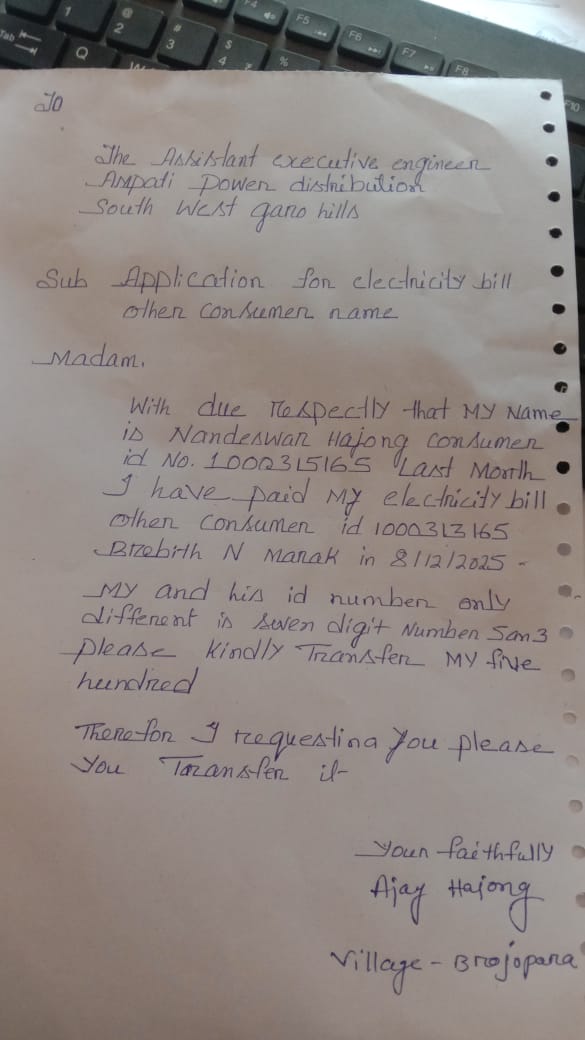 To
The Assistant executive engineer
Ampati Power distribution
South West garo hills
Sub Application for electricity bill
other consumer name
Madam.
With due respectly that MY Name
is Nandeswar Hajong consumer
id No. 1000315165 Last Month
I have paid My electricity bill
other consumer id 1000313165
Brebirth N Marak in 8/12/2025 -
MY and his id number only
different is seven digit Number 5 or 3
please kindly Transfer MY five
hundred
Therefor I requesting you please
you Transfer it
Your faithfully
Ajay Hajong
Village - Brojopara